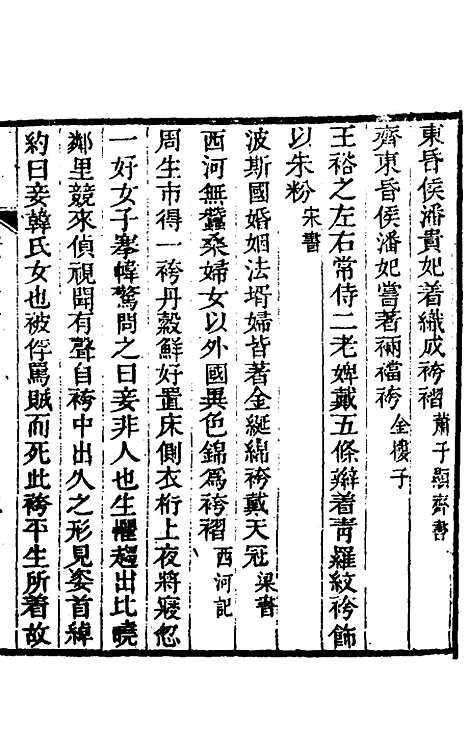 東昏侯潘貴妃着織成袴褶蕭子顯齊書
齊東昏侯潘妃嘗著裲襠袴金樓子
王裕之左右常侍二老婢戴五條辮着青羅紋袴飾
以朱粉宋書
波斯國婚姻法壻婦皆著金綖錦袴戴天冠梁書
西河無蠶桑婦女以外國異色錦爲袴褶西河記
周生市得一袴丹縠鮮好置床側衣桁上夜將寢忽
一好女子搴幃驚問之曰妾非人也生懼趨出比曉
鄰里競來偵視聞有聲自袴中出久之形見姿首綽
約曰妾韓氏女也被俘罵賊而死此袴平生所着故